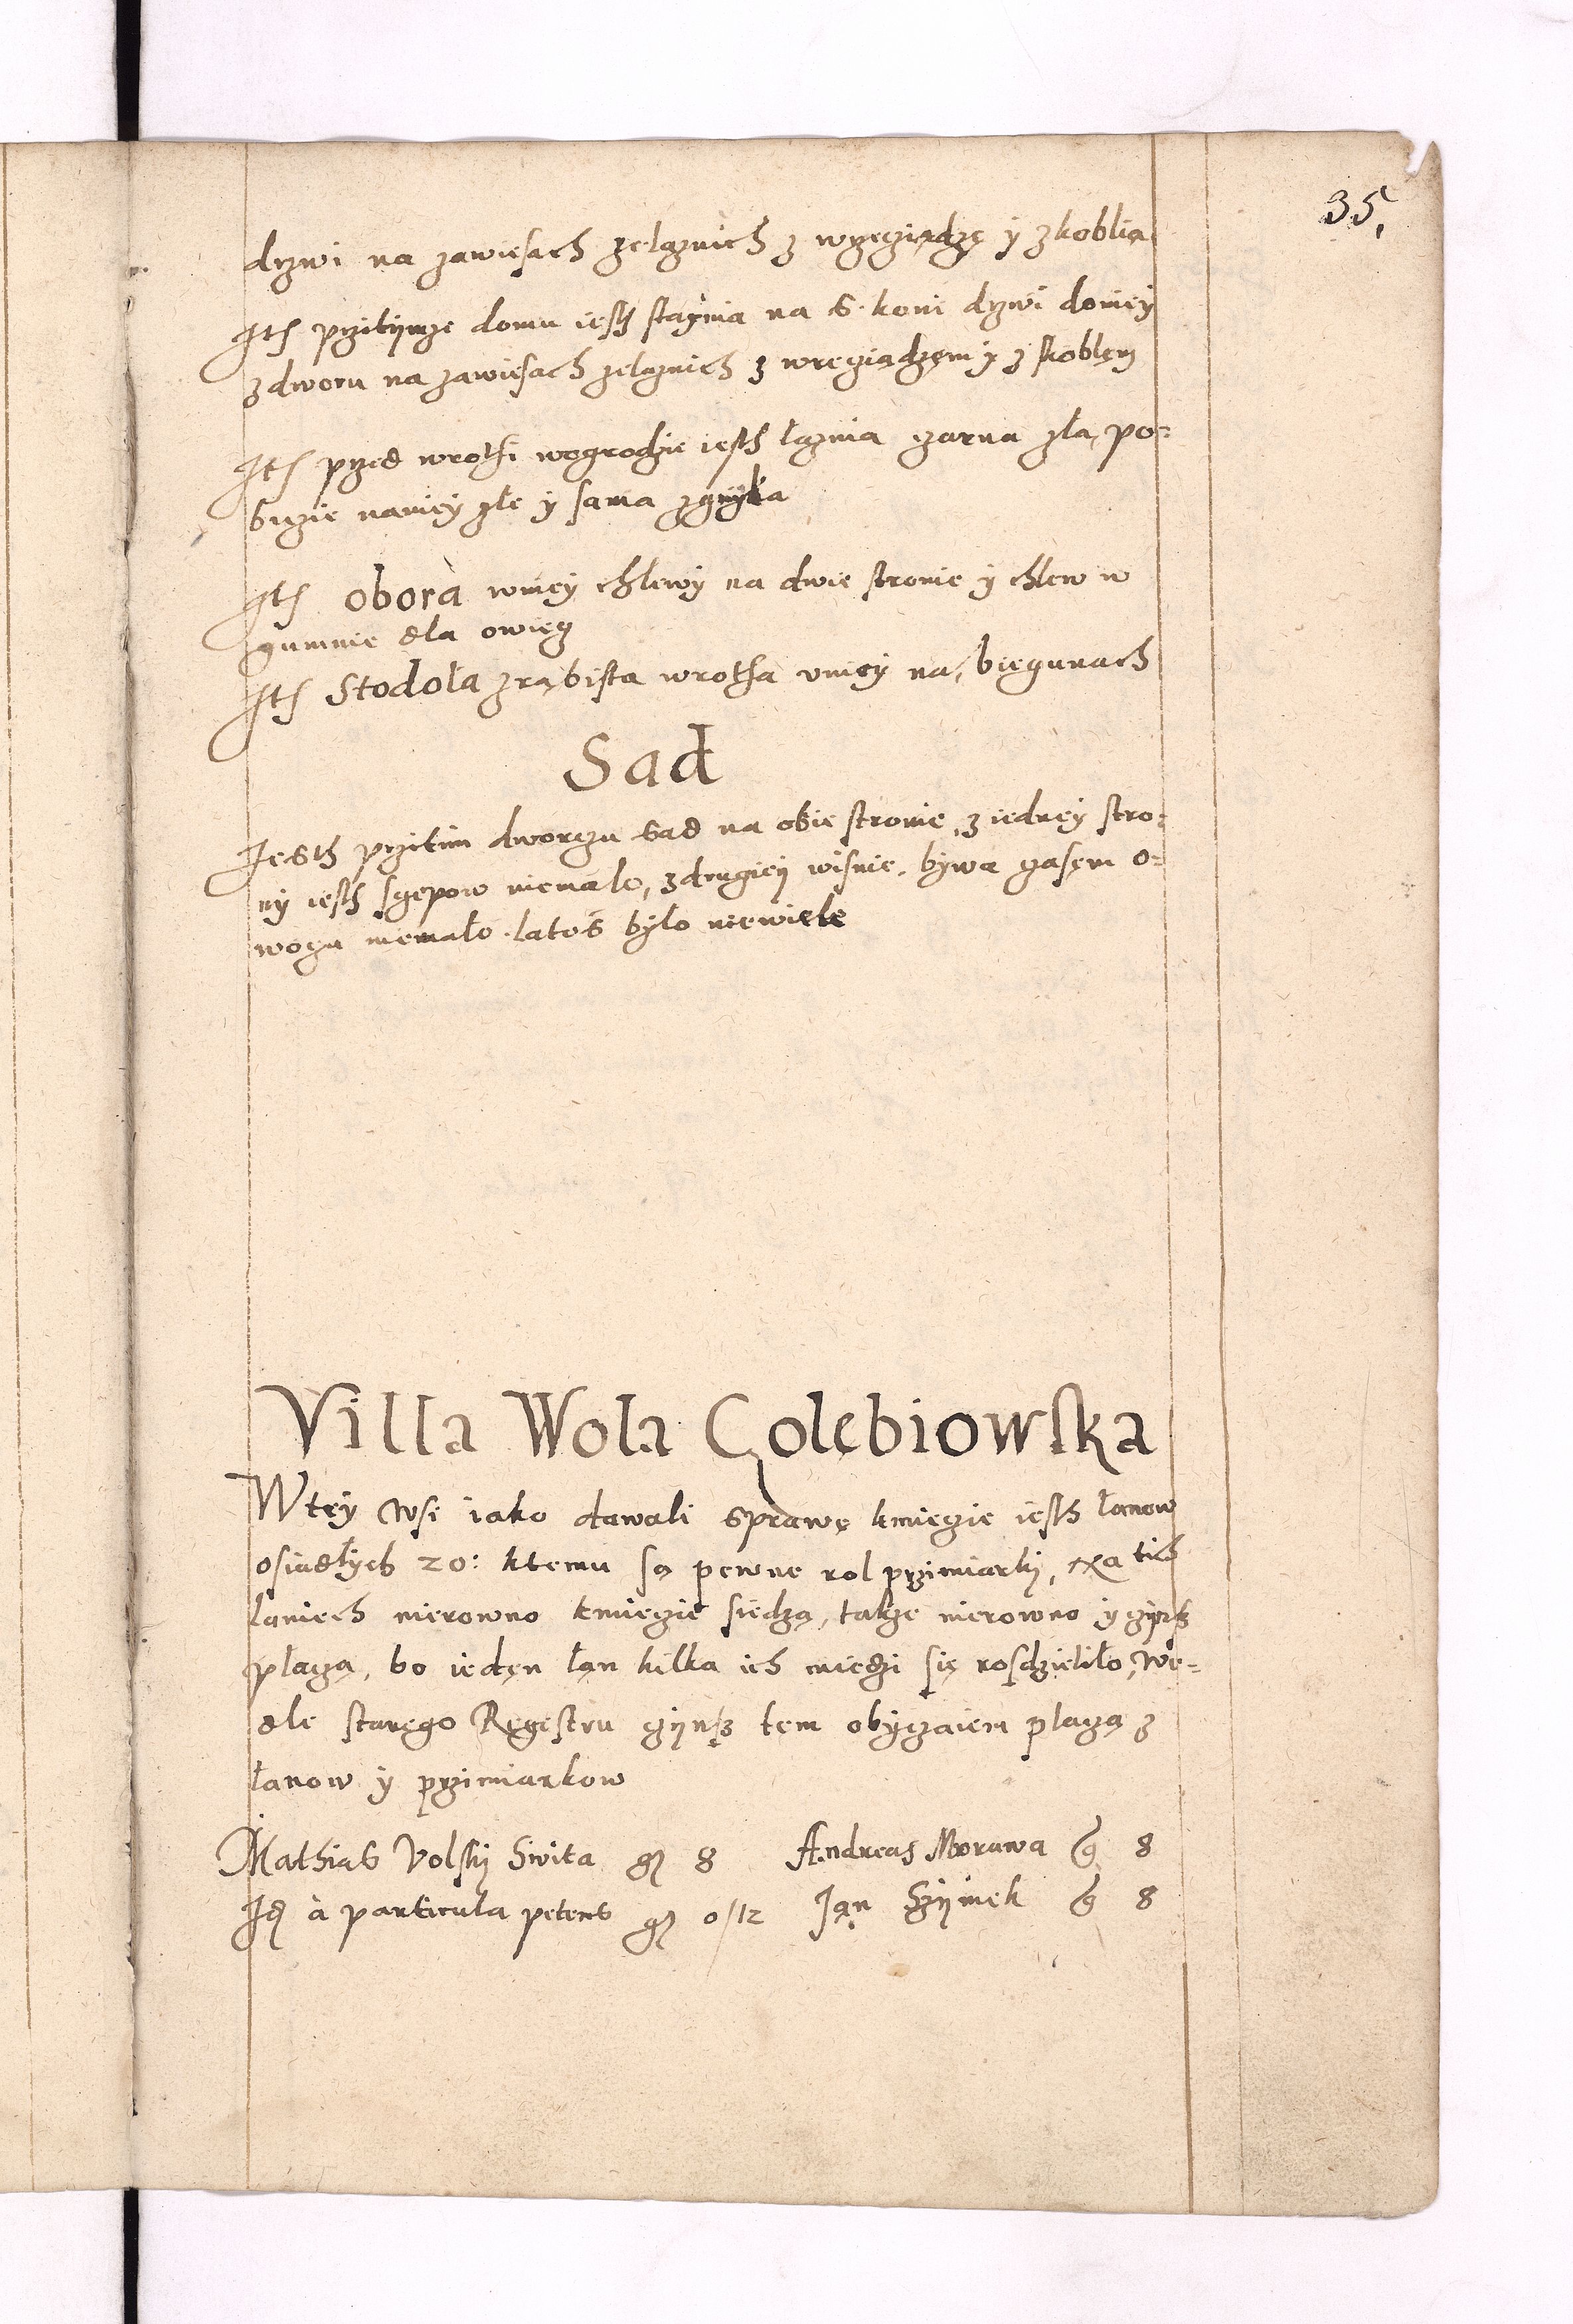 35
drzwi na zawiesach zelaznich z wrzeciądzę y zkoblią
Ith przitÿmze domu iesth staÿnia na 6. koni drzwi doniey
zdworu na zawiesach zelaznich z wreciądzem y z skoblem
Ith przed wrothi wogrodzie iesth łaznia czarna zła, po=
bicie naniey złe y sama zgniła
Ith obora wniey chlewy na dwie stronie y chlew w
gumnie dla owiec
Ith Stodoła zrąbista wrotha vniey na biegunach
Sad
Iesth przitim dworczu sad na obie stronie, z iedney stro=
ny iesth sczepow niemalo, zdrugieÿ wisnie, bywa czasem o=
wocu niemało. latos było niewiele
Villa Wola Golębiowska
Wtey wsi iako dawali sprawę kmiecie iesth łanow
osiadłych 20: ktemu są pewne rol przimiarki, na tich
łaniech nierowno kmiecie siedzą, także nierowno y czÿnsz
płaczą, bo ieden łan kilka ich miedzi się rosdzieliło, we=
dle starego Regestru czÿnsz tem obyczaiem płaczą z
łanow y przimiarkow
Mathias Volskÿ Siwita gr 8 Andreas Morawa gr 8
Id à particula petens gr 0/12 Jan Szÿmek gr 8